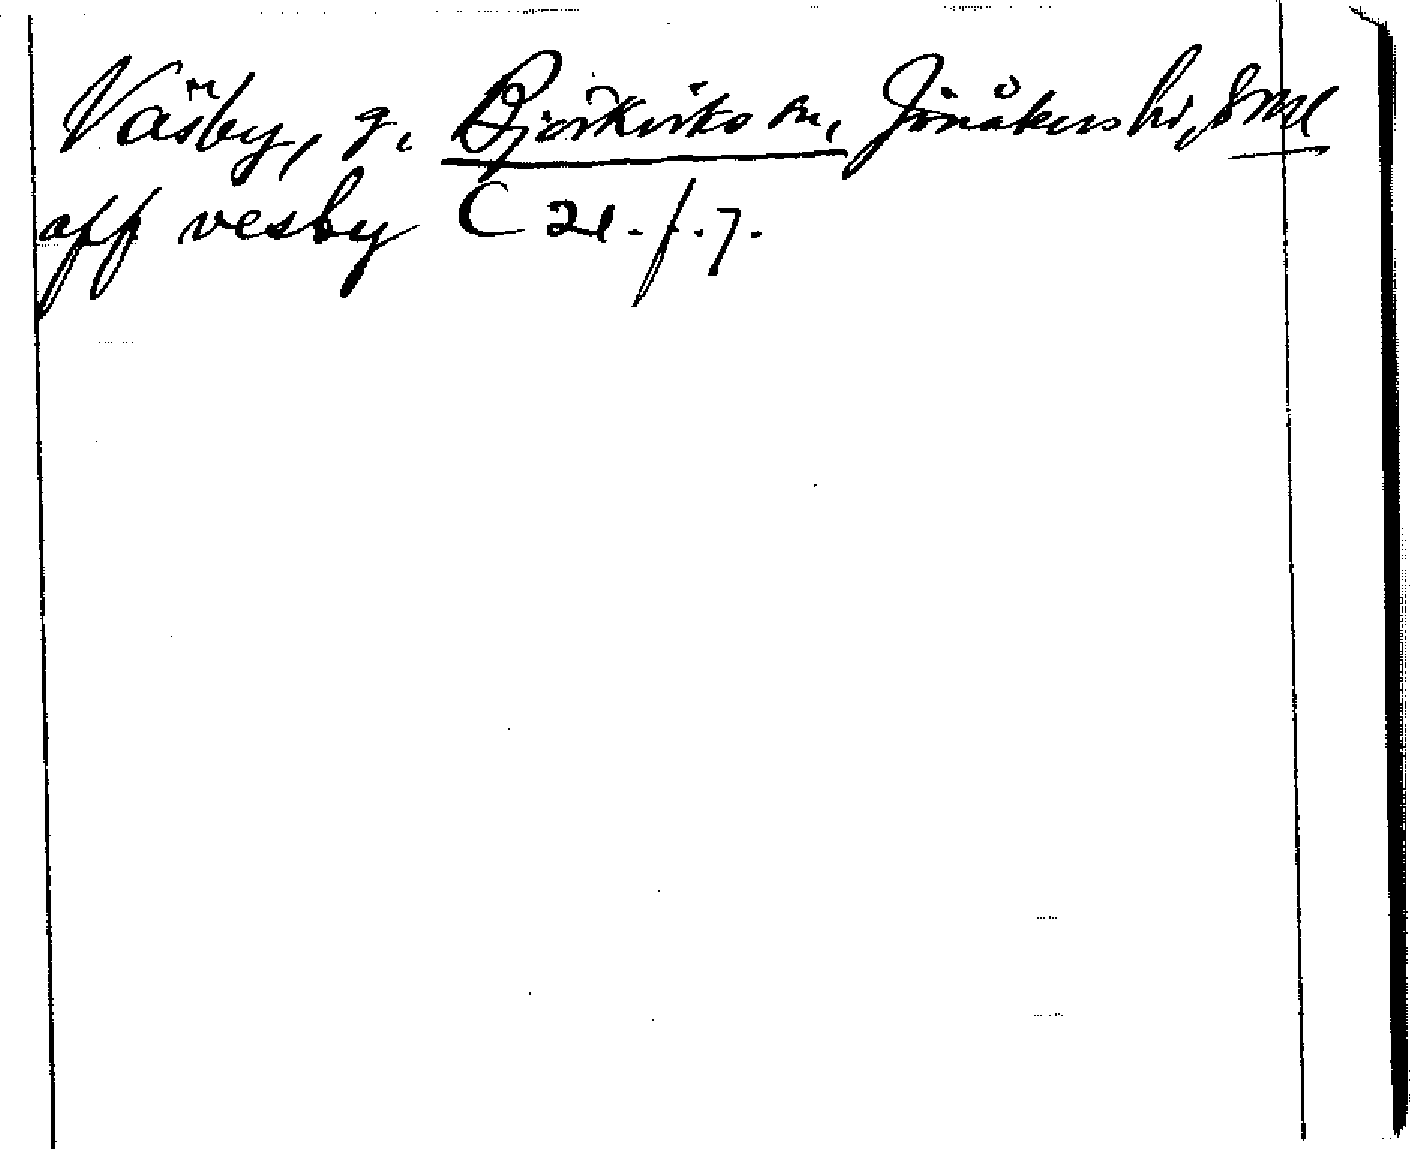 Väsby, g. Björkviks sn, Jönåkers hd, Sml
aff vesby C 21. f. 7.